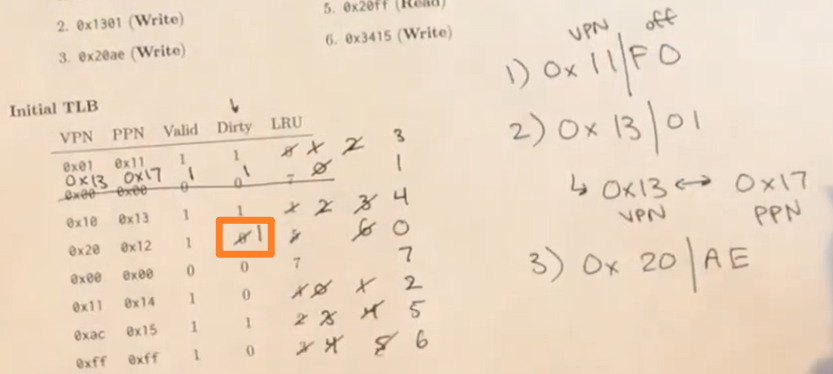 5. 0x20ff (Read)
2. 0x1301 (Write)
6. 0x3415 (Write)
3. 0x20ae (Write)
Initial TLB
VPN PPN Valid Dirty LRU
0x01 0x11 1 1 0 1 2 3
0x13 0x17 1 1 0 1
0x00 0x00 0 0 7
0x10 0x13 1 1 1 2 3 4
0x20 0x12 1 0 1 5 6 0
0x00 0x00 0 0 7 7
0x11 0x14 1 0 0 1 2
0xac 0x15 1 1 2 3 4 5
0xff 0xff 1 0 3 4 5 6
VPN off
1) 0x 11 | F0
2) 0x 13 | 01
↳ 0x13 ↔ 0x17
VPN PPN
3) 0x 20 | AE